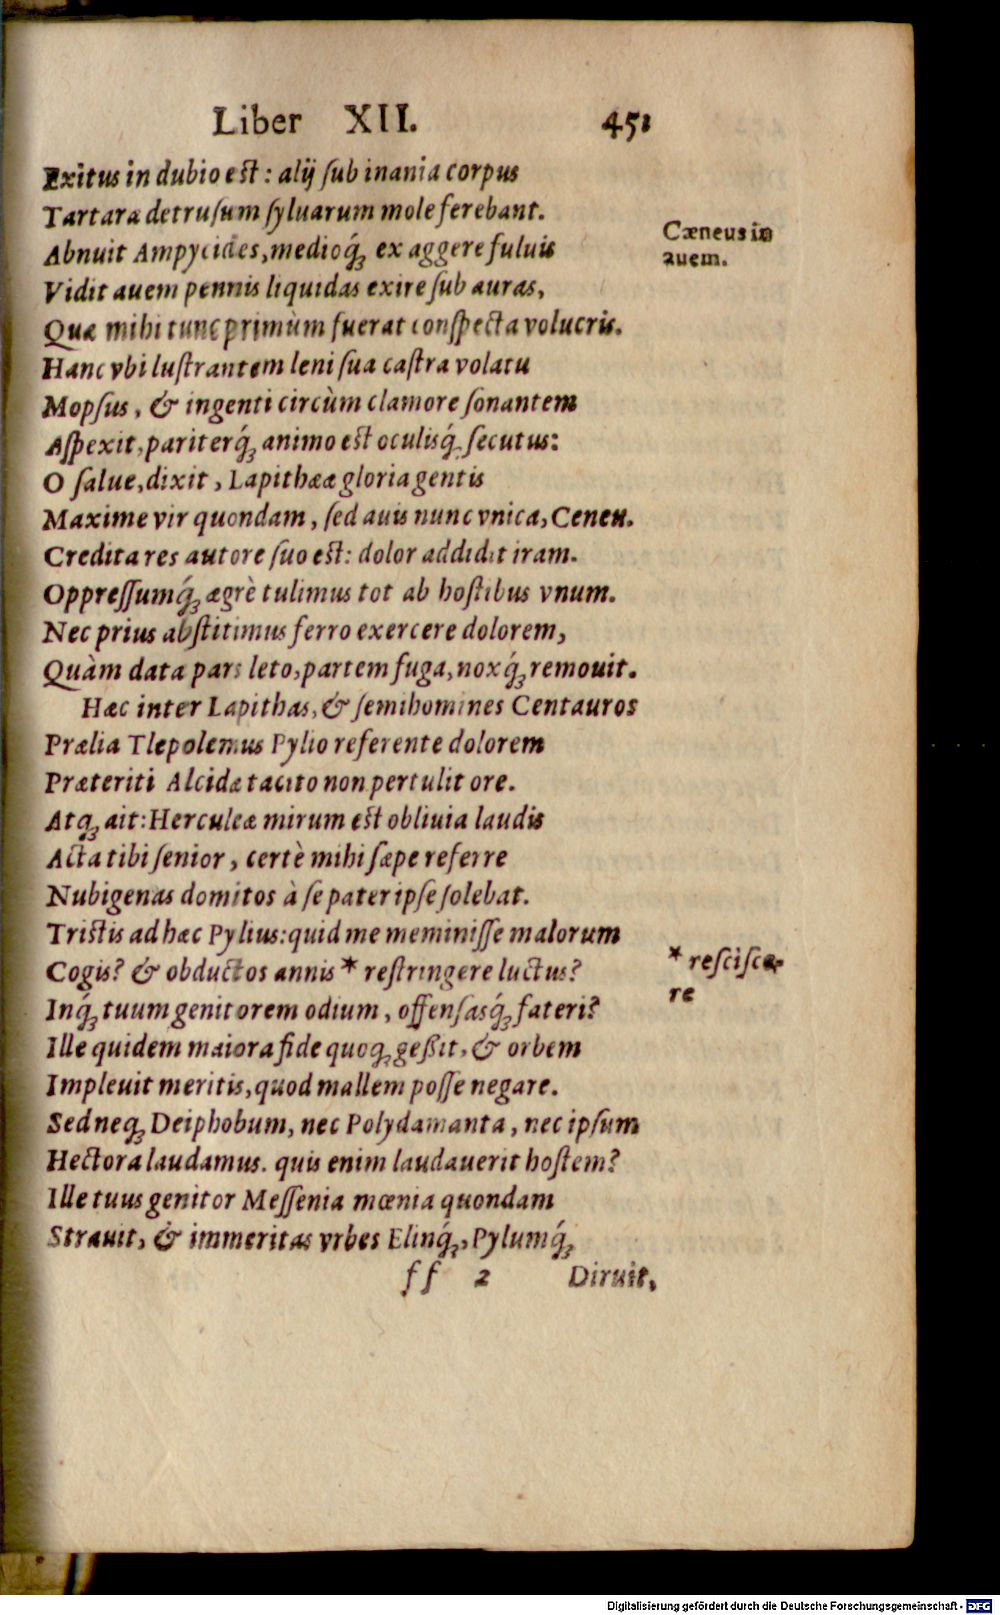 Liber XII. 451
Exitus in dubio est: alij ſub inania corpus
Tartara detruſum ſyluarum mole ferebant.
Abnuit Ampycides, medioq́ꝫ ex aggere fuluis
Cæneus in
auem.
Vidit auem pennis liquidas exire ſub auras,
Quæ mihi tunc primùm fuerat conſpecta volucris.
Hanc vbi luſtrantem leni ſua caſtra volatu
Mopſus, & ingenti circùm clamore ſonantem
Aſpexit, pariterq́ꝫ animo est oculisq́ꝫ ſecutus:
O ſalue, dixit, Lapithææ gloria gentis
Maxime vir quondam, ſed auis nunc vnica, Ceneu.
Credita res autore ſuo est: dolor addidit iram.
Oppreſſumq́ꝫ ægrè tulimus tot ab hoſtibus vnum.
Nec prius abſtitimus ferro exercere dolorem,
Quàm data pars leto, partem fuga, noxq́ꝫ remouit.
Hæc inter Lapithas, & ſemihomines Centauros
Prælia Tlepolemus Pylio referente dolorem
Præteriti Alcidæ tacito non pertulit ore.
Atqꝫ ait: Herculeæ mirum est obliuia laudis
Acta tibi ſenior, certè mihi ſæpe referre
Nubigenas domitos à ſe pater ipſe ſolebat.
Tristis ad hæc Pylius: quid me meminiſſe malorum
Cogis? & obductos annis * reſtringere luctus?
* reſciſce-
re
Inq́ꝫ tuum genitorem odium, offenſasq́ꝫ fateri?
Ille quidem maiora fide quoqꝫ geßit, & orbem
Impleuit meritis, quod mallem poſſe negare.
Sed neqꝫ Deiphobum, nec Polydamanta, nec ipſum
Hectora laudamus. quis enim laudauerit hoſtem?
Ille tuus genitor Meſſenia mœnia quondam
Strauit, & immeritas vrbes Elinq́ꝫ, Pylumq́ꝫ
ff 2 Diruit,
Digitalisierung gefördert durch die Deutsche Forschungsgemeinschaft - DFG